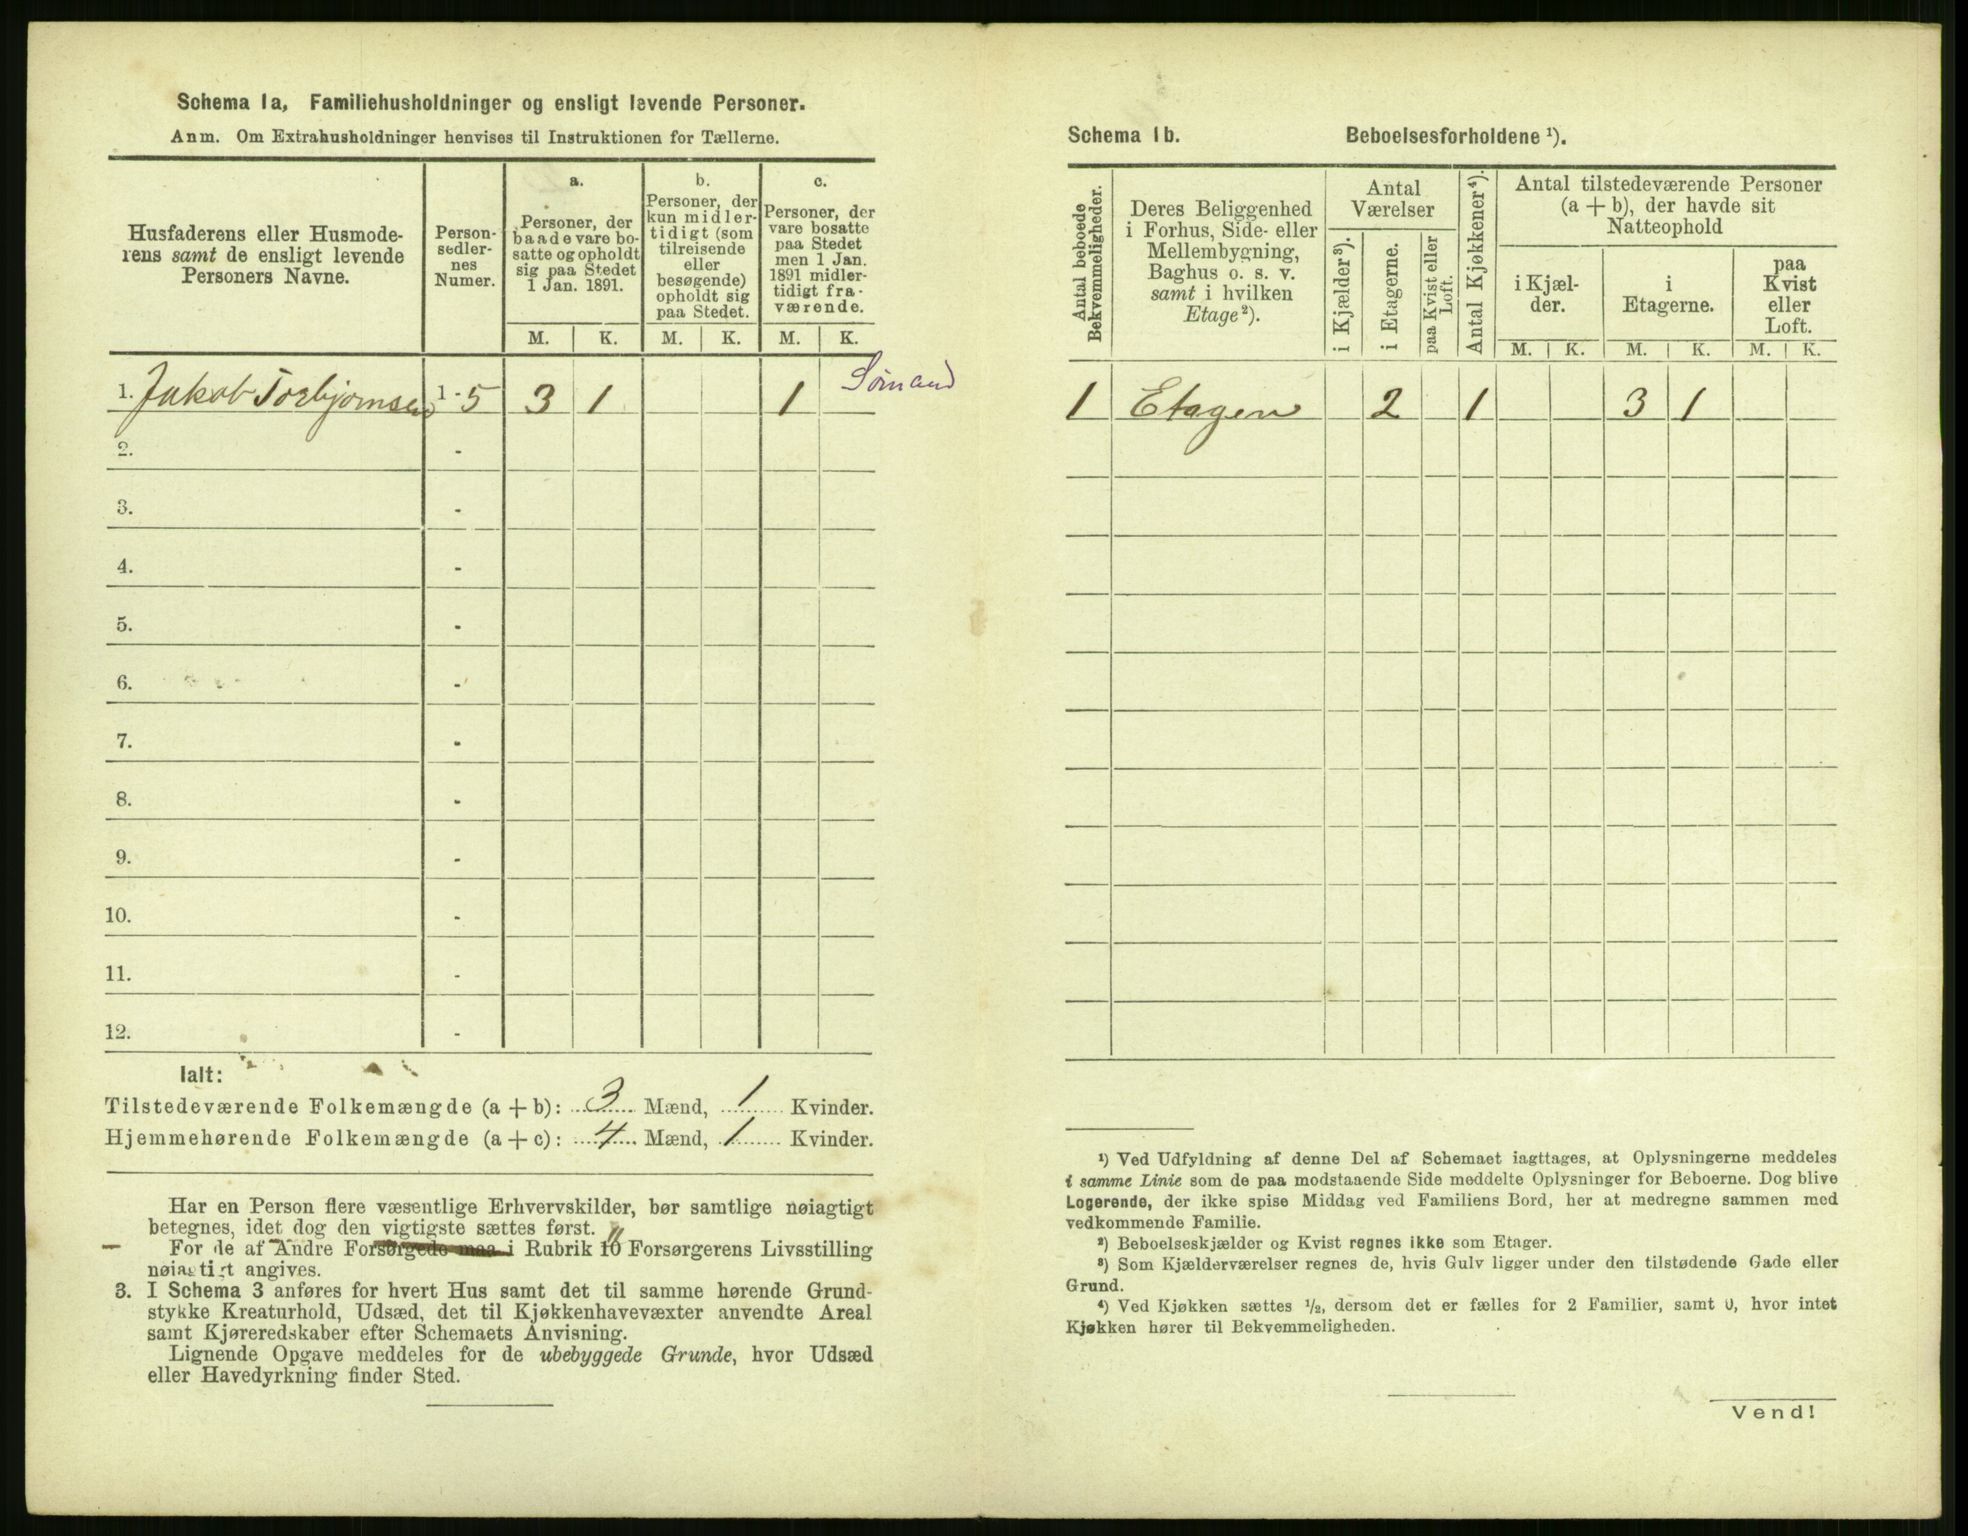 Schema 1a, Familiehusholdninger og ensligt levende Personer.
Anm. Om Extrahusholdninger henvises til Instruktionen for Tællerne.
Husfaderens eller Husmode-
rens samt de ensligt levende
Personers Navne.
Person-
sedler-
nes
Numer.
a.
Personer, der
baade vare bo-
satte og opholdt
sig paa Stedet
1 Jan. 1891.
b.
Personer, der
kun midler-
tidigt (som
tilreisende
eller
besøgende)
opholdt sig
paa Stedet.
c.
Personer, der
vare bosatte
paa Stedet
men 1 Jan.
1891 midler-
tidigt fra-
værende.
M. K. M. K. M. K.
1. Jakob Torbjørnsen 1-5 3 1 1 Sømand
2. -
3. -
4. -
5. -
6. -
7. -
8. -
9. -
10. -
11. -
12. -
Ialt:
Tilstedeværende Folkemængde (a + b): 3 Mænd, 1 Kvinder.
Hjemmehørende Folkemængde (a + c): 4 Mænd, 1 Kvinder.
Har en Person flere væsentlige Erhvervskilder, bør samtlige nøiagtigt
betegnes, idet dog den vigtigste sættes først.
For de af Andre Forsørgede maa i Rubrik 10 Forsørgerens Livsstilling
nøiagtigt angives.
3. I Schema 3 anføres for hvert Hus samt det til samme hørende Grund-
stykke Kreaturhold, Udsæd, det til Kjøkkenhavevæxter anvendte Areal
samt Kjøreredskaber efter Schemaets Anvisning.
Lignende Opgave meddeles for de ubebyggede Grunde, hvor Udsæd
eller Havedyrkning finder Sted.
Schema 1b. Beboelsesforholdene ¹).
Antal beboede
Bekvemmeligheder.
Deres Beliggenhed
i Forhus, Side- eller
Mellembygning,
Baghus o. s. v.
samt i hvilken
Etage²).
Antal
Værelser
i Kjælder³).
i Etagerne.
paa Kvist eller
Loft.
Antal Kjøkkener⁴).
Antal tilstedeværende Personer
(a + b), der havde sit
Natteophold
i Kjæl-
der.
i
Etagerne.
paa
Kvist
eller
Loft.
M. K. M. K. M. K.
1 Etagen 2 1 3 1
¹) Ved Udfyldning af denne Del af Schemaet iagttages, at Oplysningerne meddeles
i samme Linie som de paa modstaaende Side meddelte Oplysninger for Beboerne. Dog blive
Logerende, der ikke spise Middag ved Familiens Bord, her at medregne sammen med
vedkommende Familie.
²) Beboelseskjælder og Kvist regnes ikke som Etager.
³) Som Kjælderværelser regnes de, hvis Gulv ligger under den tilstødende Gade eller
Grund.
⁴) Ved Kjøkken sættes ½, dersom det er fælles for 2 Familier, samt 0, hvor intet
Kjøkken hører til Bekvemmeligheden.
Vend!